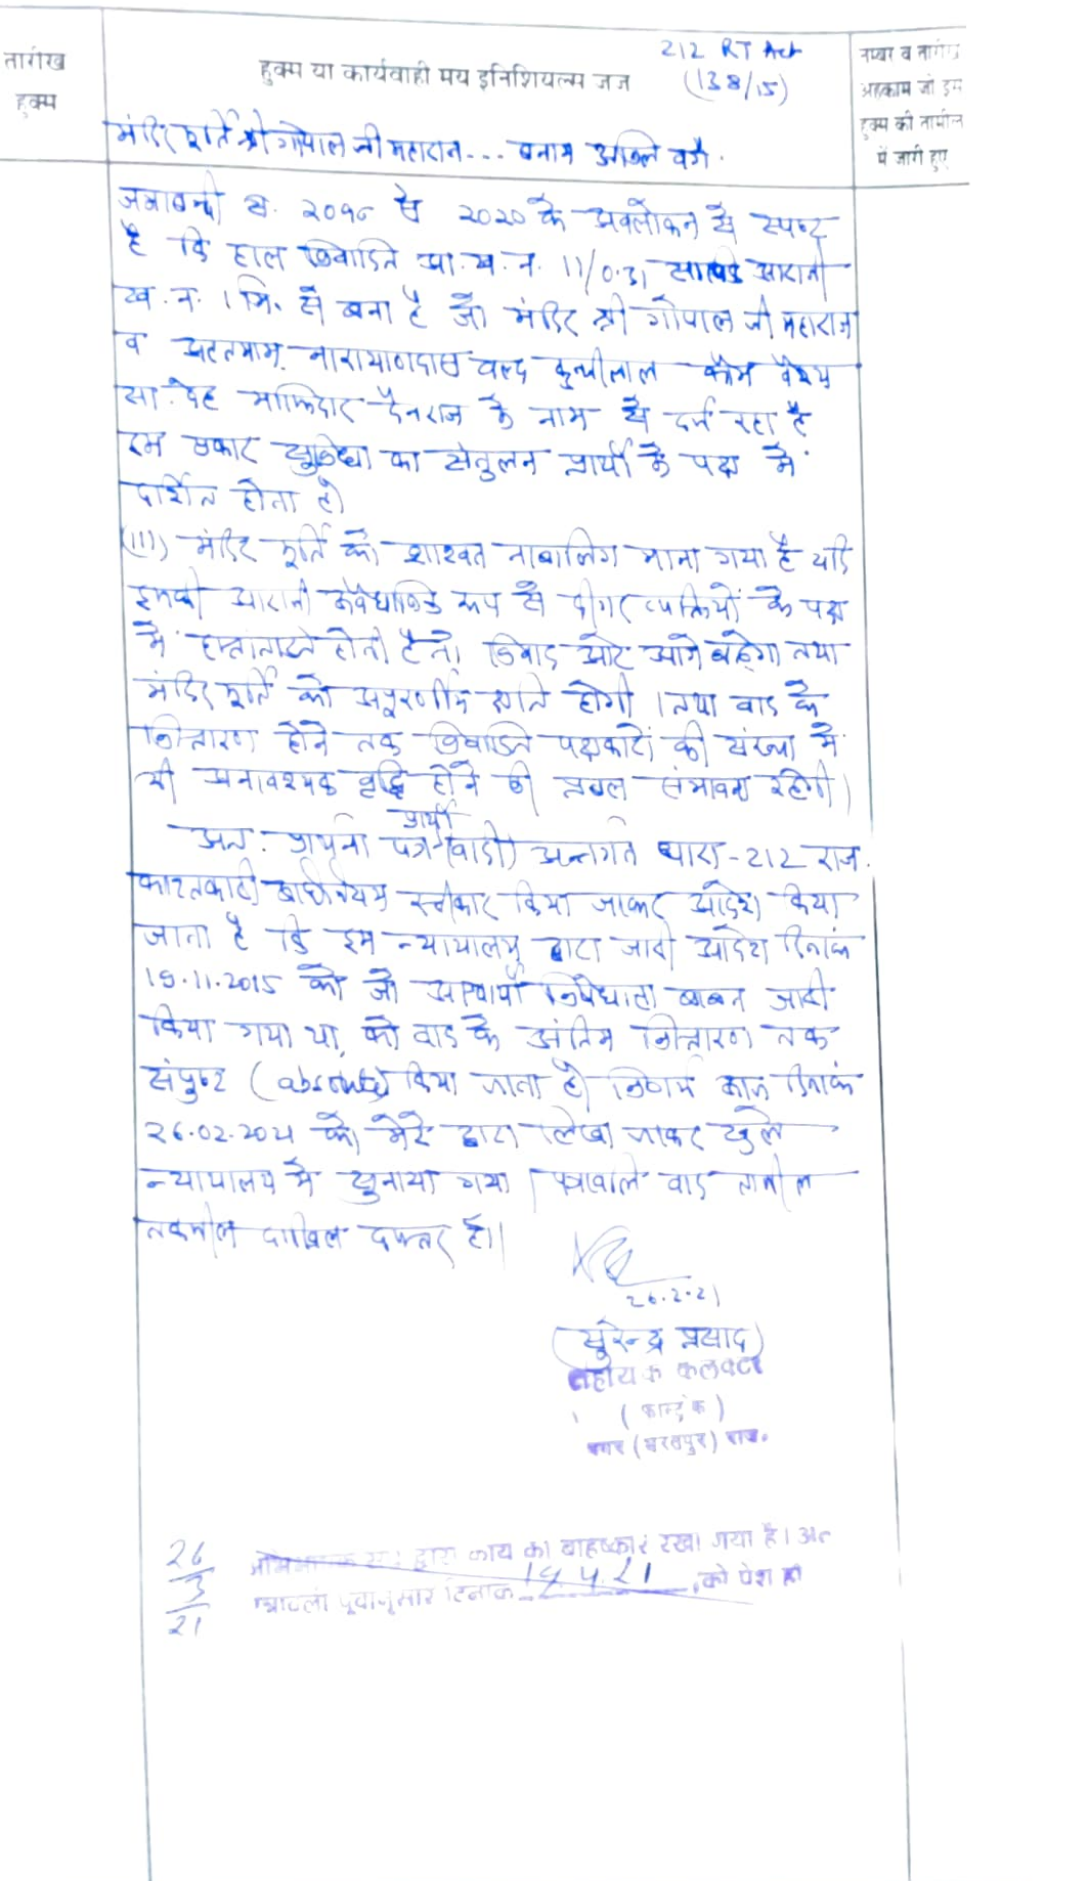 212 RT Act
(138/15)
तारीख
हुक्म
हुक्म या कार्यवाही मय इनिशियल्स जज
नम्बर व तारीख
अहकाम जो इस
हुक्म की तामील
में जारी हुए
मंदिर मूर्ति श्री गोपाल जी महाराज... बनाम अनिल वगै.
जमाबन्दी स. २०१८ से २०२० के अवलोकन से स्पष्ट
है कि हाल विवादित आ.ख.न. 11/0.31 साबिक आराजी
ख.न. 1 मि. से बना है जो मंदिर श्री गोपाल जी महाराज
व अहतमाम नारायणदास वल्द कुन्जीलाल कौम वैश्य
सा.देह माफिदार के नाम से दर्ज रहा है
इस प्रकार सुविधा का संतुलन प्रार्थी के पक्ष में
दर्शित होता है।
(III) मंदिर मूर्ति को शाश्वत नाबालिग माना गया है यदि
इसकी आराजी अवैधानिक रूप से दीगर व्यक्तियों के पक्ष
में हस्तान्तरित होती है तो विवाद और आगे बढ़ेगा तथा
मंदिर मूर्ति को अपूरणीय क्षति होगी। तथा वाद के
निस्तारण होने तक विवादित पक्षकारों की संख्या में
भी अनावश्यक वृद्धि होने की प्रबल संभावना रहेगी।
प्रार्थी
अत: प्रार्थना पत्र (वादी) अन्तर्गत धारा-212 राज.
काश्तकारी अधिनियम स्वीकार किया जाकर आदेश किया
जाता है कि इस न्यायालय द्वारा जारी आदेश दिनांक
19.11.2015 को जो अस्थायी निषेधाज्ञा बाबत जारी
किया गया था, को वाद के अंतिम निस्तारण तक
संपुष्ट (absolute) किया जाता है। निर्णय आज दिनांक
26.02.2021 को मेरे द्वारा लिखा जाकर खुले
न्यायालय में सुनाया गया। पत्रावलि वाद तामील
तकमील दाखिल दफ्तर हो।
26.2.21
(सुरेन्द्र प्रसाद)
सहायक कलक्टर
नगर (भरतपुर) राज.
26/3/21
द्वारा कार्य का बाहष्कार रखा गया है। अतः
पत्रावली पूर्वानुसार दिनांक 19.4.21 को पेश हो